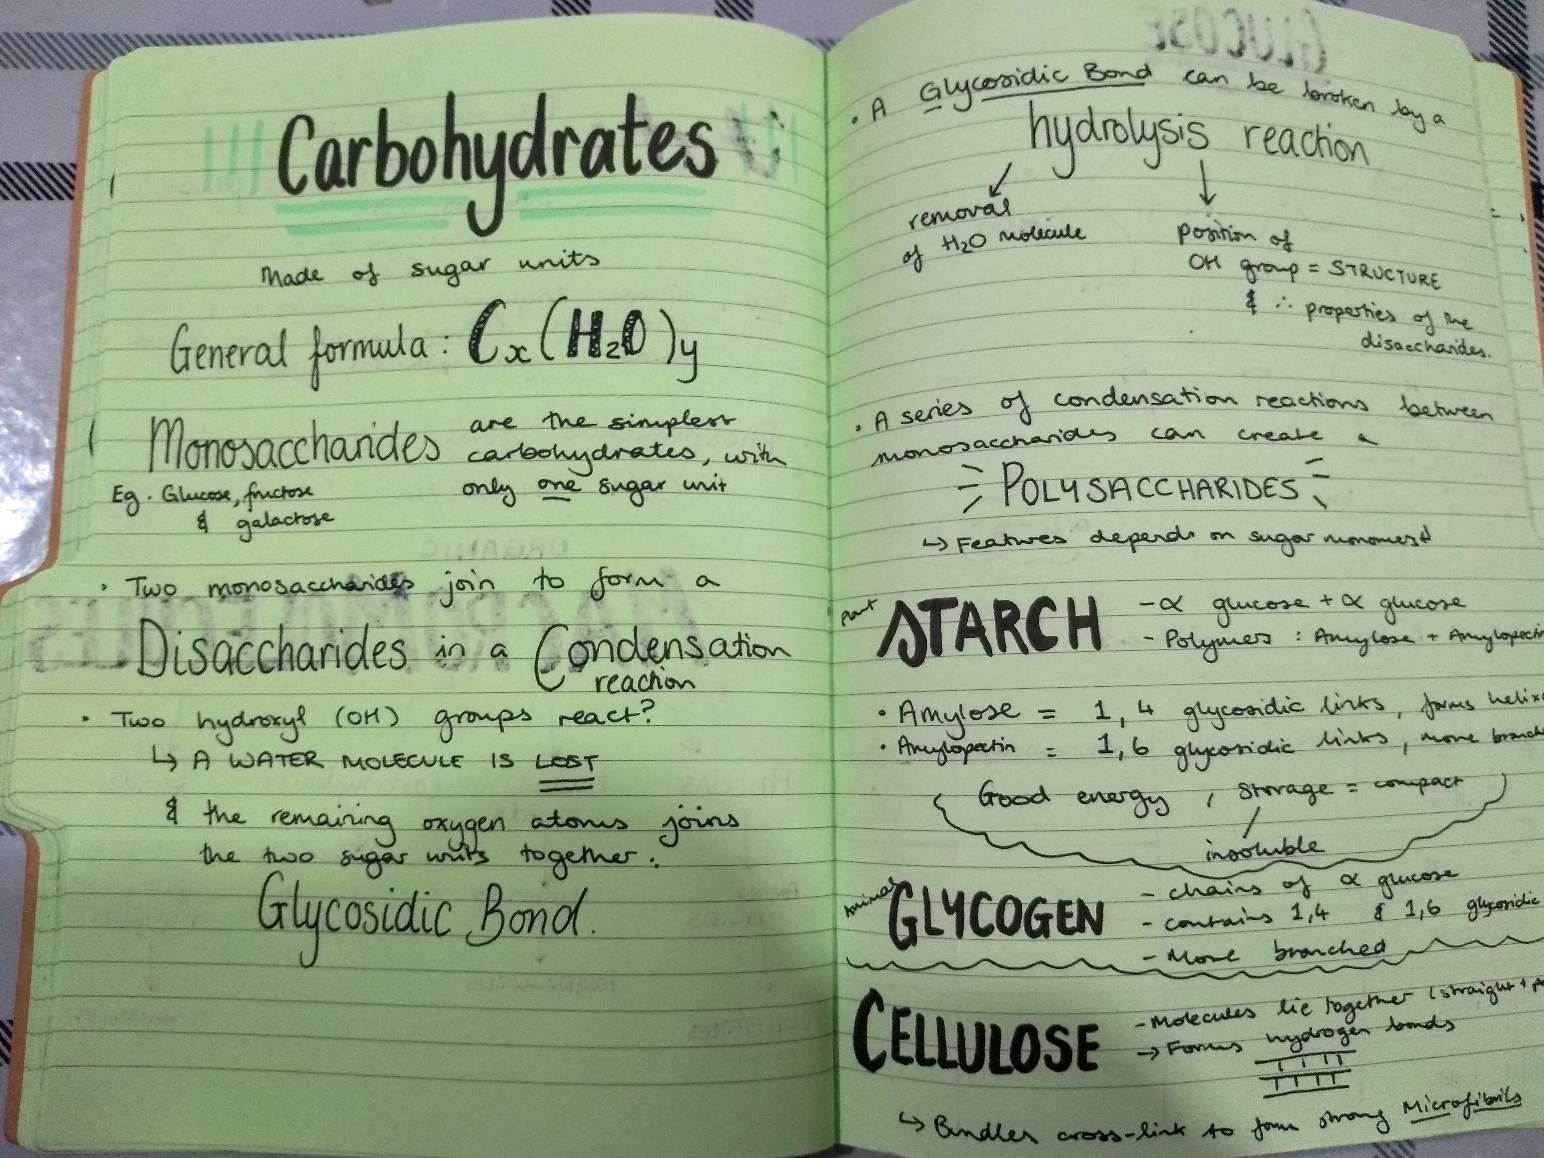 Carbohydrates
Made of sugar units
General formula: Cx(H2O)y
Monosaccharides are the simplest
carbohydrates, with
only one sugar unit
Eg. Glucose, fructose
& galactose
· Two monosaccharides join to form a
Disaccharides in a Condensation
reaction
· Two hydroxyl (OH) groups react?
↳ A WATER MOLECULE IS LOST
& the remaining oxygen atoms joins
the two sugar units together.
Glycosidic Bond.
GLUCOSE
· A Glycosidic Bond can be broken by a
hydrolysis reaction
removal
of H2O molecule
position of
OH group = STRUCTURE
& ∴ properties of the
disaccharides.
· A series of condensation reactions between
monosaccharides can create a
POLYSACCHARIDES
↳ Features depends on sugar monomers
plant STARCH - α glucose + α glucose
- Polymers : Amylose + Amylopectin
· Amylose = 1, 4 glycosidic links, forms helix
· Amylopectin = 1,6 glycosidic links, more branche
Good energy, storage = compact
insoluble
Animal GLYCOGEN - chains of α glucose
- contains 1,4 & 1,6 glycosidic
- More branched
CELLULOSE - Molecules lie together (straight +
→ Forms hydrogen bonds
↳ Bundles cross-link to form strong Microfibrils